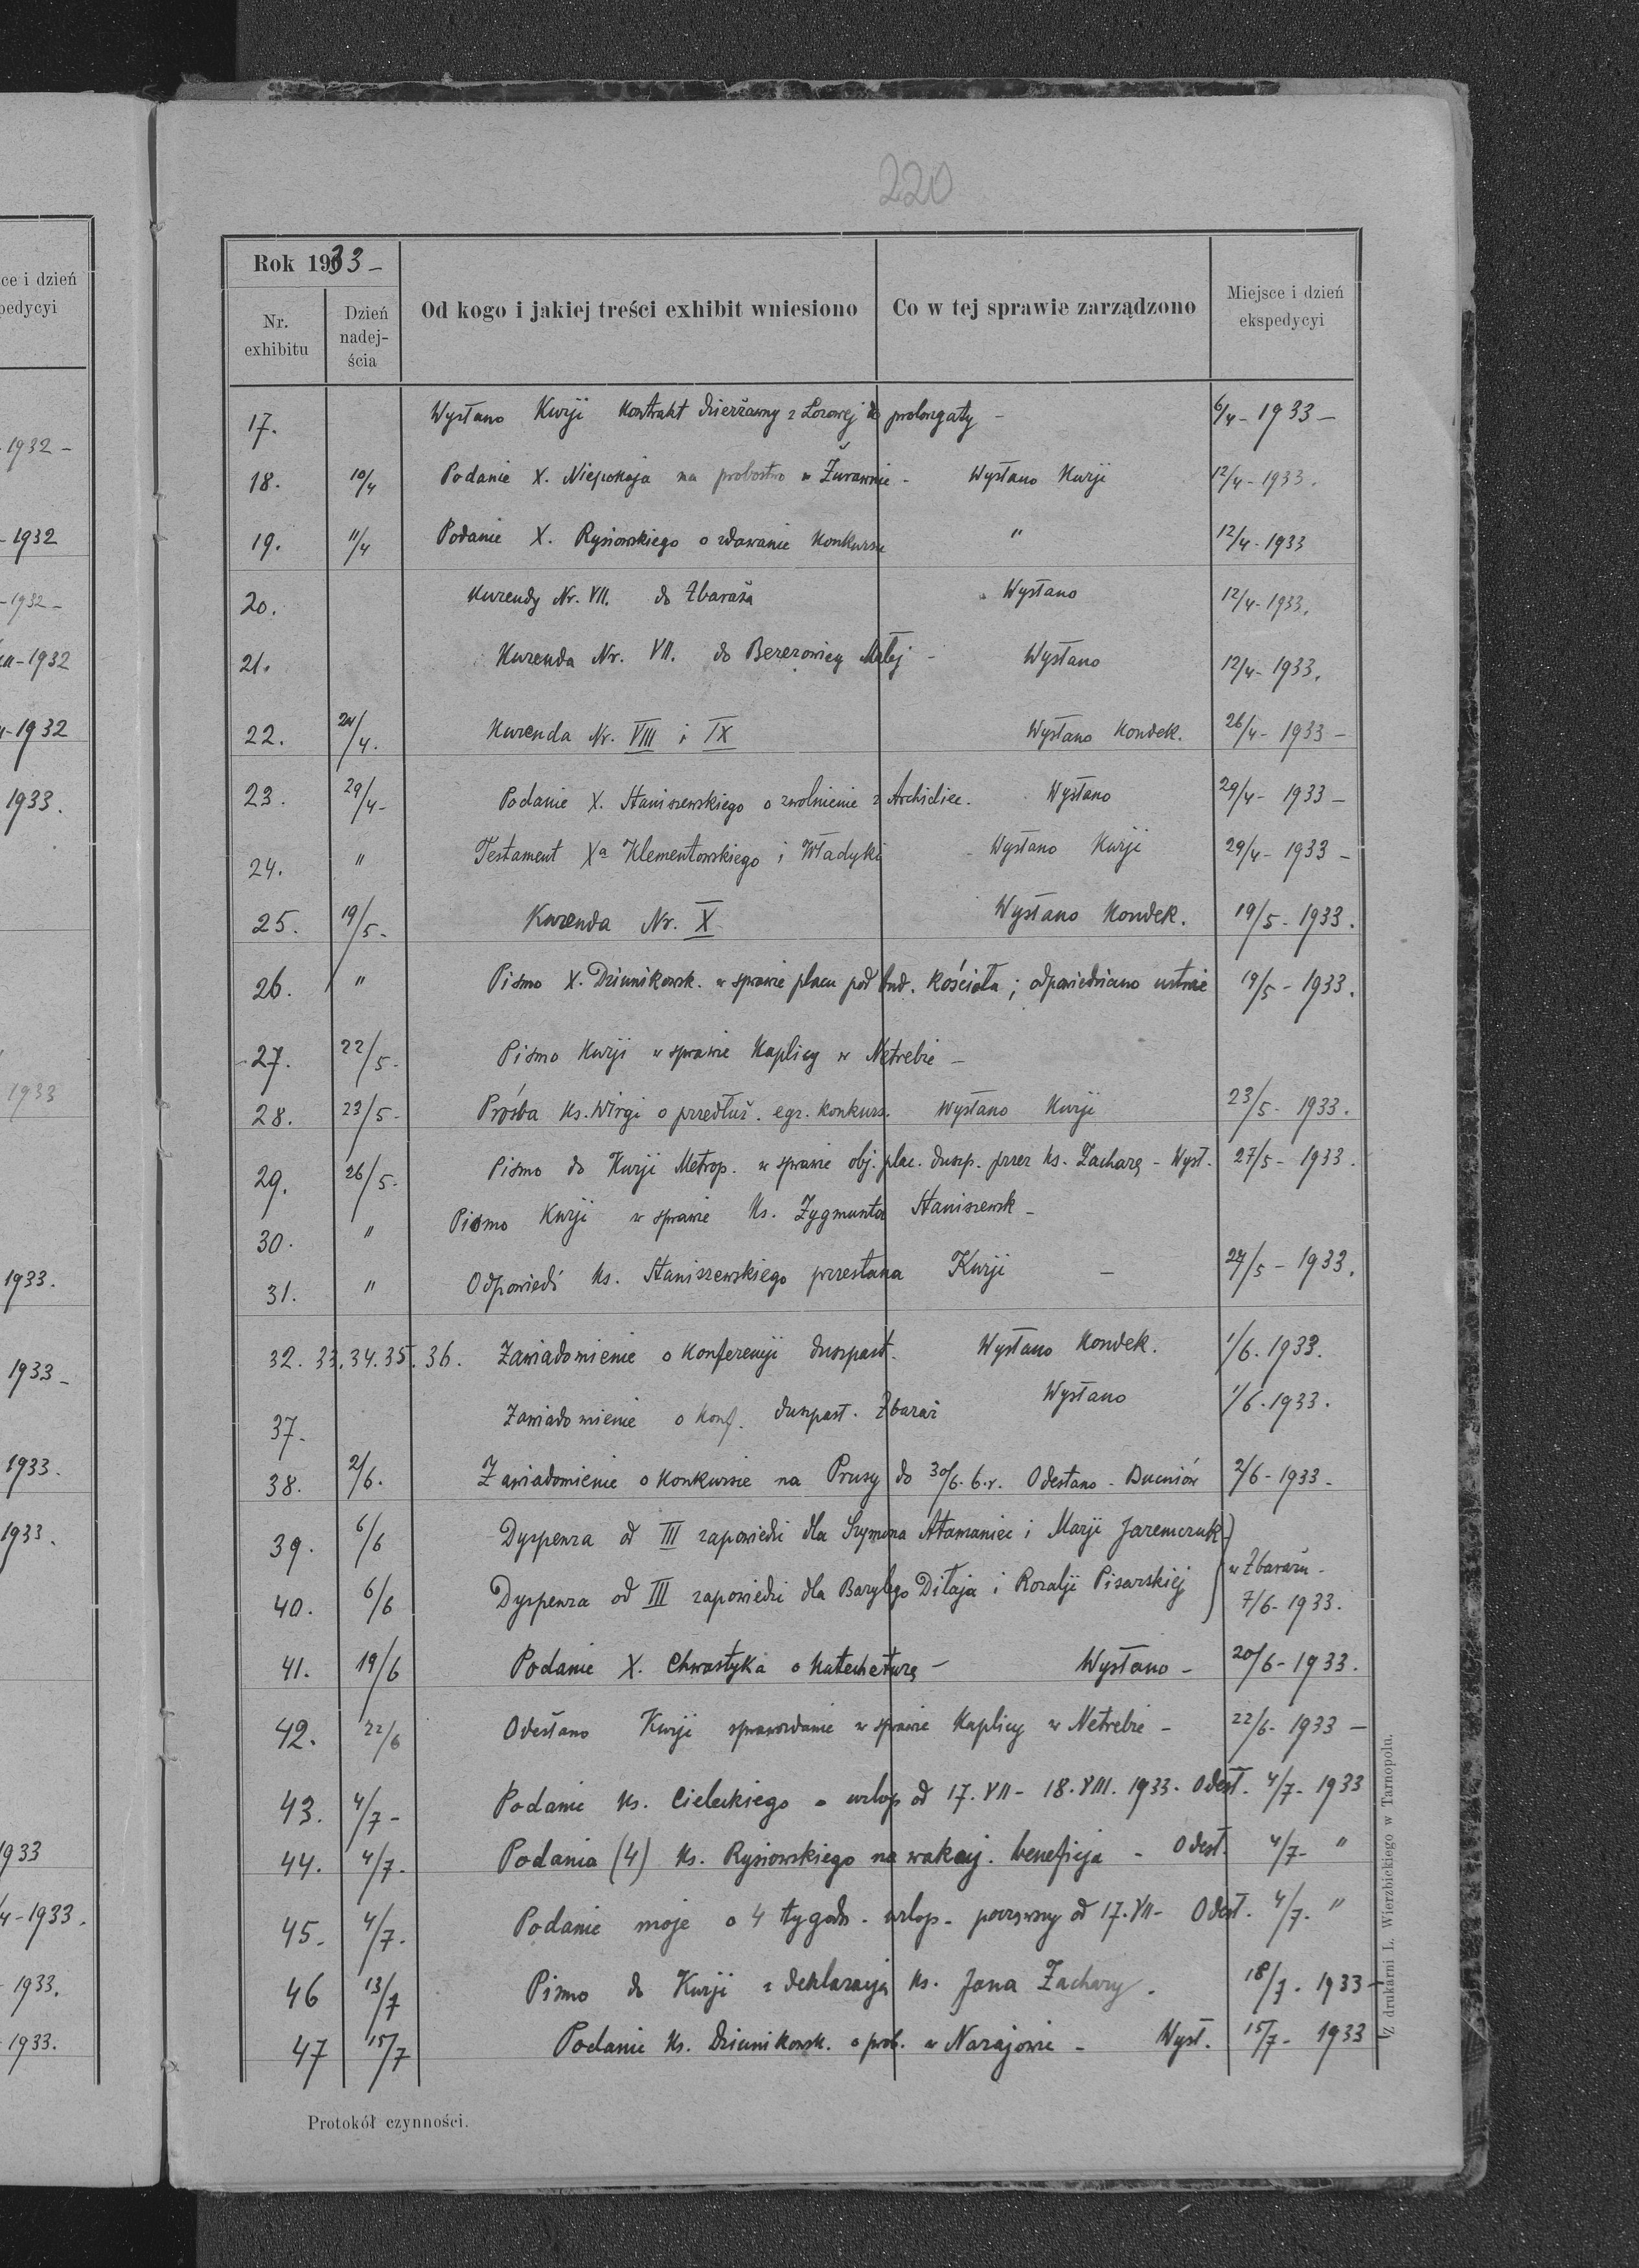 220
Rok 1933 -
Nr. exhibitu
Dzień nadejścia
Od kogo i jakiej treści exhibit wniesiono
Co w tej sprawie zarządzono
Miejsce i dzień ekspedycyi
17. Wysłano Kurji Kontrakt dzierżawny z Łozowej do prolongaty - 6/4 - 1933 -
18. 10/4 Podanie X. Niepokoja na probostwo w Żurawnie - Wysłano Kurji 12/4 - 1933.
19. 11/4 Podanie X. Rysiowskiego o zdawanie Konkursu " 12/4 - 1933
20. Kurendy Nr. VII. do Zbaraża Wysłano 12/4 - 1933.
21. Kurenda Nr. VII. do Berezowicy Małej - Wysłano 12/4 - 1933.
22. 24/4. Kurenda Nr. VIII i IX Wysłano Kondek. 26/4 - 1933 -
23. 29/4 - Podanie X. Staniszewskiego o zwolnienie z Archidiec. Wysłano 29/4 - 1933 -
24. " Testament Xa Klementowskiego i Władyki - Wysłano Kurji 29/4 - 1933 -
25. 19/5 - Kurenda Nr. X Wysłano Kondek. 19/5 - 1933.
26. " Pismo X. Dziunikowsk. w sprawie placu pod bud. Kościoła; odpowiedziano ustnie 19/5 - 1933.
27. 22/5 - Pismo Kurji w sprawie Kaplicy w Netrebie -
28. 23/5 - Prośba Ks. Wirgi o przedłuż. egz. konkurs. Wysłano Kurji 23/5 - 1933.
29. 26/5 - Pismo do Kurji Metrop. w sprawie obj. plac. duszp. przez Ks. Zacharę - Wysł. 27/5 - 1933.
30. " Pismo Kurji w sprawie Ks. Zygmunta Staniszewsk -
31. " Odpowiedź Ks. Staniszewskiego przesłana Kurji - 27/5 - 1933.
32. 33. 34. 35. 36. Zawiadomienie o Konferencji duszpast. Wysłano Kondek. 1/6. 1933.
37. Zawiadomienie o Konf. duszpast. Zbaraż Wysłano 1/6. 1933.
38. 2/6. Zawiadomienie o Konkursie na Prusy do 30/6. b.r. Odesłano - Bucniów 2/6 - 1933 -
39. 6/6 Dyspenza od III zapowiedzi dla Szymona Atamaniec i Marji Jaremczuk
40. 6/6 Dyspenza od III zapowiedzi dla Baryłego Diłaja i Rozalji Pisarskiej w Zbarażu - 7/6 - 1933.
41. 19/6 Podanie X. Chwastyka o Katecheturę - Wysłano - 20/6 - 1933.
42. 22/6 Odesłano Kurji sprawozdanie w sprawie Kaplicy w Netrebie - 22/6 - 1933 -
43. 4/7 - Podanie Ks. Cieleckiego o urlop od 17. VII - 18. VIII. 1933. Odesł. 4/7 - 1933
44. 4/7 - Podania (4) Ks. Rysiowskiego na wakuj. beneficja - Odesł. 4/7 - "
45. 4/7. Podanie moje o 4 tygodn. urlop - począwszy od 17. VII - Odesł. 4/7. "
46 13/7 Pismo do Kurji z deklaracją Ks. Jana Zachary. 18/7. 1933 -
47 15/7 Podanie Ks. Dziunikowsk. o prob. w Narajowie - Wysł. 15/7 - 1933
Protokół czynności.
Z drukarni L. Wierzbickiego w Tarnopolu.
ce i dzień
pedycyi
1932 -
- 1932
- 1932 -
- 1932
- 1932
1933.
1933
1933.
1933 -
1933.
1933.
1933
- 1933.
- 1933.
- 1933.